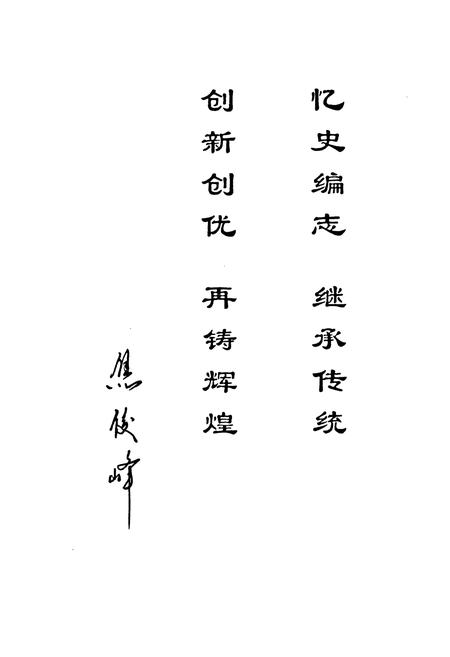 忆史编志 继承传统
创新创优 再铸辉煌
焦俊峰